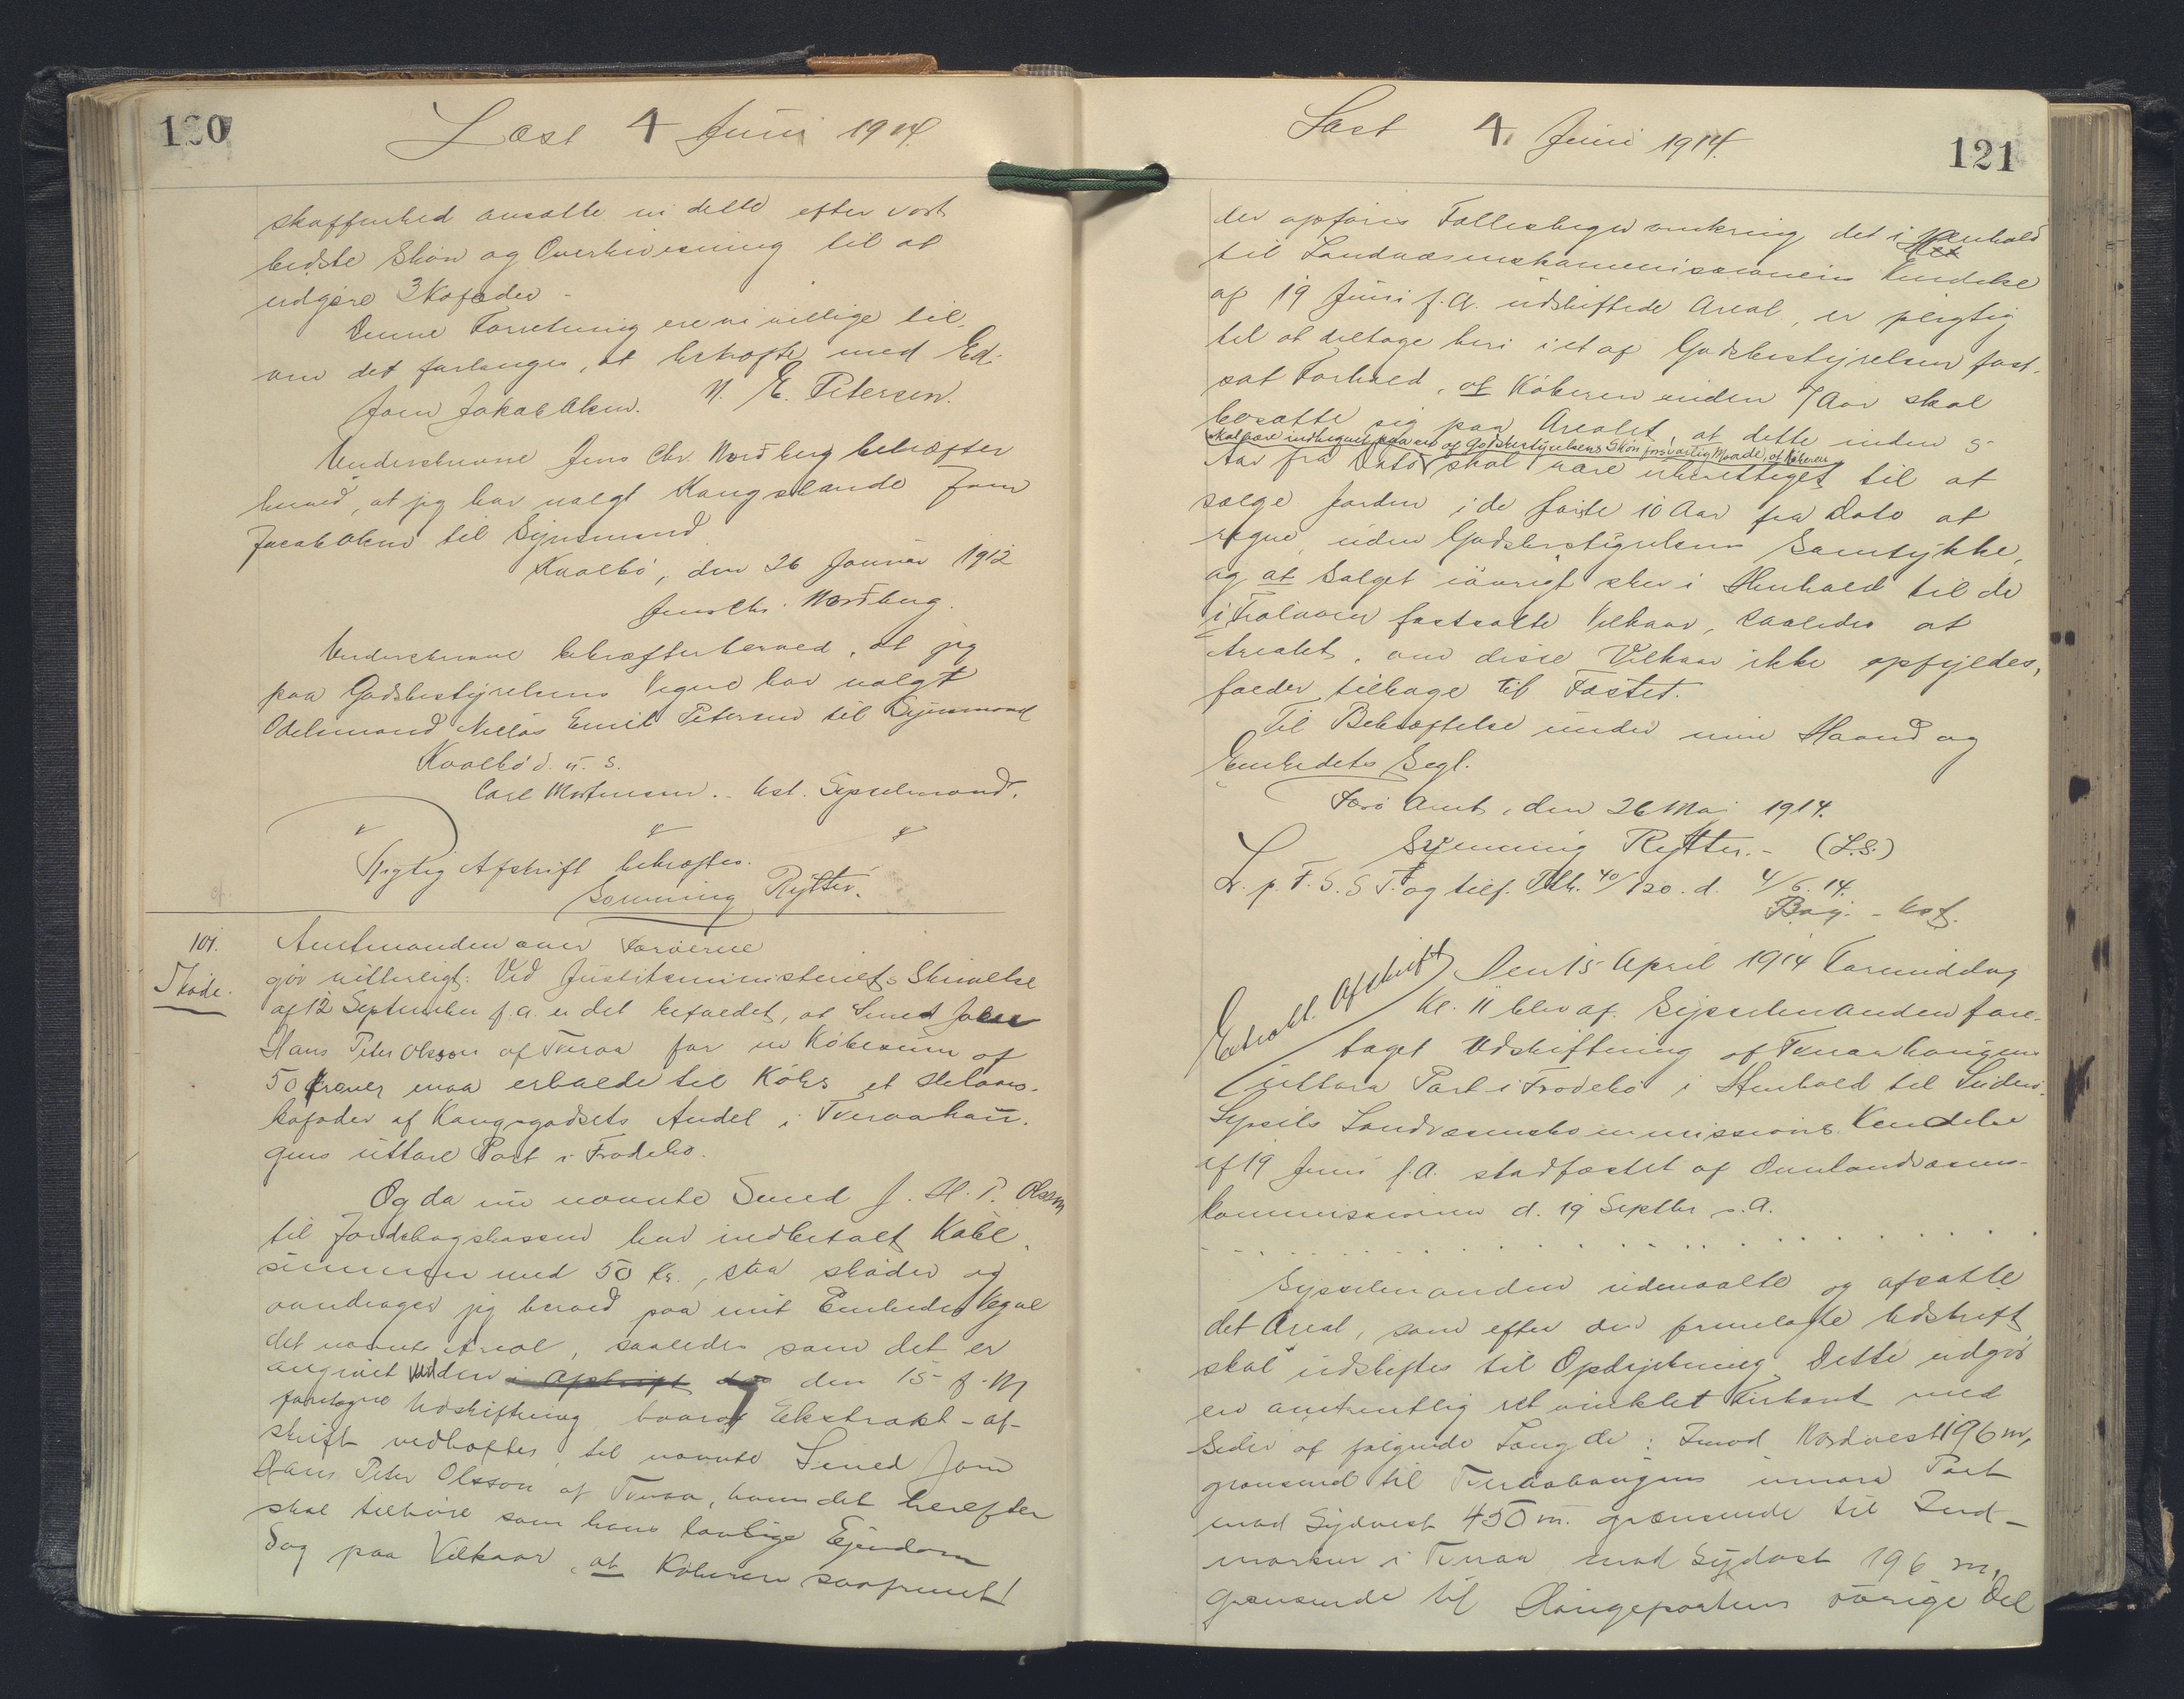 120
Læst 4 Juni 1914.
skaffenhed ansatte vi dette efter vort
bedste Skøn og Overbevisning til at
udgøre 3 Kofoder -
Denne Forretning ere vi villige til,
om det forlanges, at bekræfte med Ed.
Joen Jakob Olsen. N. E. Petersen.
Underskrevne Jens Chr. Nordberg bekræfter
herved, at jeg har valgt Kongsbonde Joen
Jacob Olsen til Synsmand
Kvalbö, den 26 Januar 1912
Jens Chr. Nordberg.
Underskrevne bekræfter herved, at jeg
paa Godsbestyrelsens Vegne har valgt
Odelsmand Niclas Emil Petersen til Synsmand
Kvalbö d. u. s.
Carl Mortensen. - kst. Sysselmand.
Rigtig Afskrift bekræftes.
Svenning Rytter.
101.
Skøde.
Amtmanden over Færøerne
gør vitterligt: Ved Justitsministeriets Skrivelse
af 12 September f.a. er det befalet, at Smed Joen
Hans Peter Olsson af Tveraa for en Købesum af
50 Kroner maa erholde til Købs et Stelaans-
kofoder af Kongsgodsets Andel i Tveraahau-
gens uttara Part i Frodebø.
Og da nu nævnte Smed J. H. P. Olsson
til Jordebogskassen har indbetalt Købe-
summen med 50 Kr., saa skøder og
overdrager jeg herved paa mit Embedes Vegne
det nævnte Areal, saaledes som det er
angivet ved den i Afskrift den 15 f. M
foretagne Udskiftning hvoraf Ekstrakt-af-
skrift vedhæftes, til nævnte Smed Joen
Hans Peter Olsson af Tveraa, ham det herefter
skal tilhøre som hans lovlige Ejendom
Dog paa Vilkaar, at Køberen saafremt
121
Læst 4. Juni 1914.
der opføres Fælleshegn omkring det i Henhold
til Landvæsenskommissionens Kendelse
af 19 Juni f.A. udskiftede Areal, er pligtig
til at deltage heri i et af Godsbestyrelsen fast-
sat Forhold, at Køberen inden 7 Aar skal
bosætte sig paa Arealet, at dette inden 5
skal være indhegnet paa en af Godsbestyrelsens Skøn forsvarlig Maade, at Køberen
Aar fra Dato skal være uberettiget til at
sælge Jorden i de første 10 Aar fra Dato at
regne, uden Godsbestyrelsens Samtykke,
og at Salget iøvrigt sker i Henhold til de
i Loven fastsatte Vilkaar, saaledes at
Arealet, om disse Vilkaar ikke opfyldes,
falder tilbage til Fæstet.
Til Bekræftelse under min Haand og
Embedets Segl.
Færø Amt, den 26 Maj 1914.
Svenning Rytter. - (L.S.)
L. p. F. S. S T. og tilf. Ptb. 40/120. d. 4/6. 14.
Bög. - kst.
Extrakt. Afskrift
Den 15 April 1914 Formiddag
Kl. 11 blev af Sysselmanden fore-
taget Udskiftning af Tveraahaugens
uttara Part i Frodebø i Henhold til Suderø
Syssels Landvæsenskommissions Kendelse
af 19 Juni f.A. stadfæstet af Overlandvæsens-
kommissionen d. 19 Septbr s.A.
. . . . . . . . . . . . . . . .
Sysselmanden udmaalte og afsatte
det Areal, som efter den fremlagte Udskrift
skal udskiftes til Opdyrkning. Dette udgør
en omtrentlig ret vinklet Firkant med
Sider af følgende Længde: Imod Nordvest 196 m,
grænsende til Tveraahaugens innara Part
mod Sydvest 450 m. grænsende til Ind-
marken i Tveraa mod Sydøst 196 m,
grænsende til Haugepartens øvrige Del